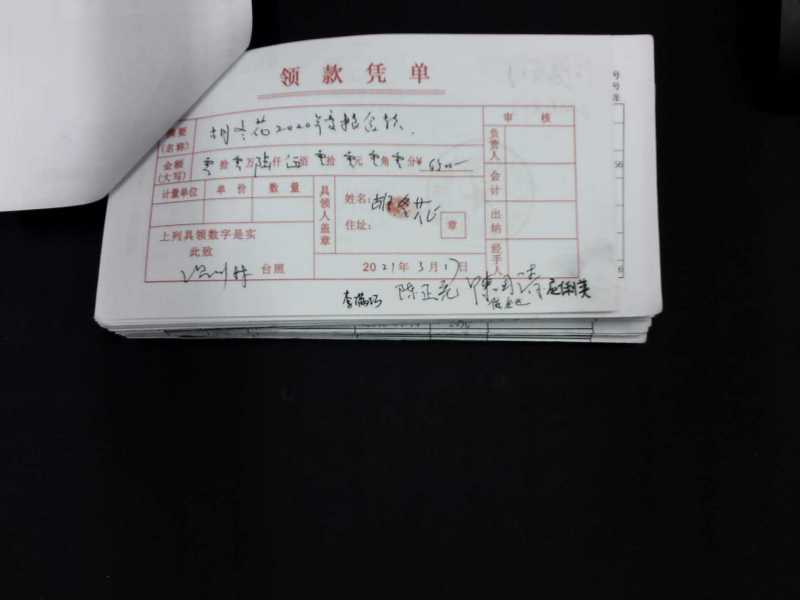 领款凭单
摘要
(名称)
胡冬花2020年度租金款.
审核
金额
(大写)
零拾零万陆仟伍佰零拾零元零角零分¥ 6500—
负责人
计量单位 单价 数量
具领人盖章
姓名: 胡冬花
住址:
章
会计
出纳
经手人
上列具领数字是实
此致
台照
2021年3月17日
陈正亮